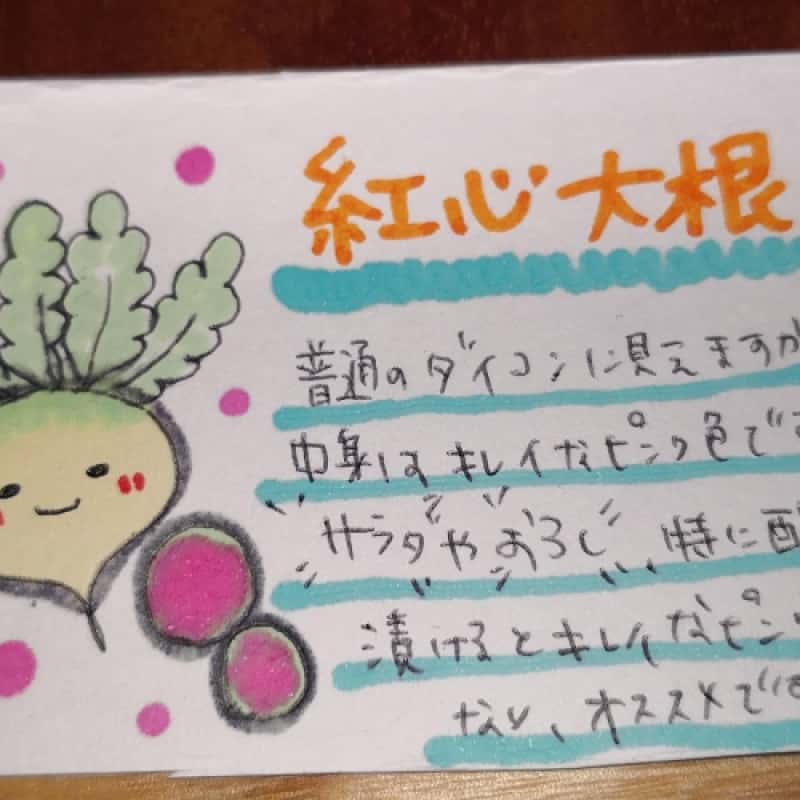 紅心大根
普通のダイコンに見えますが
中身はキレイなピンク色です
サラダやおろし 特に酢
漬けるとキレイなピンク
なり、オススメです